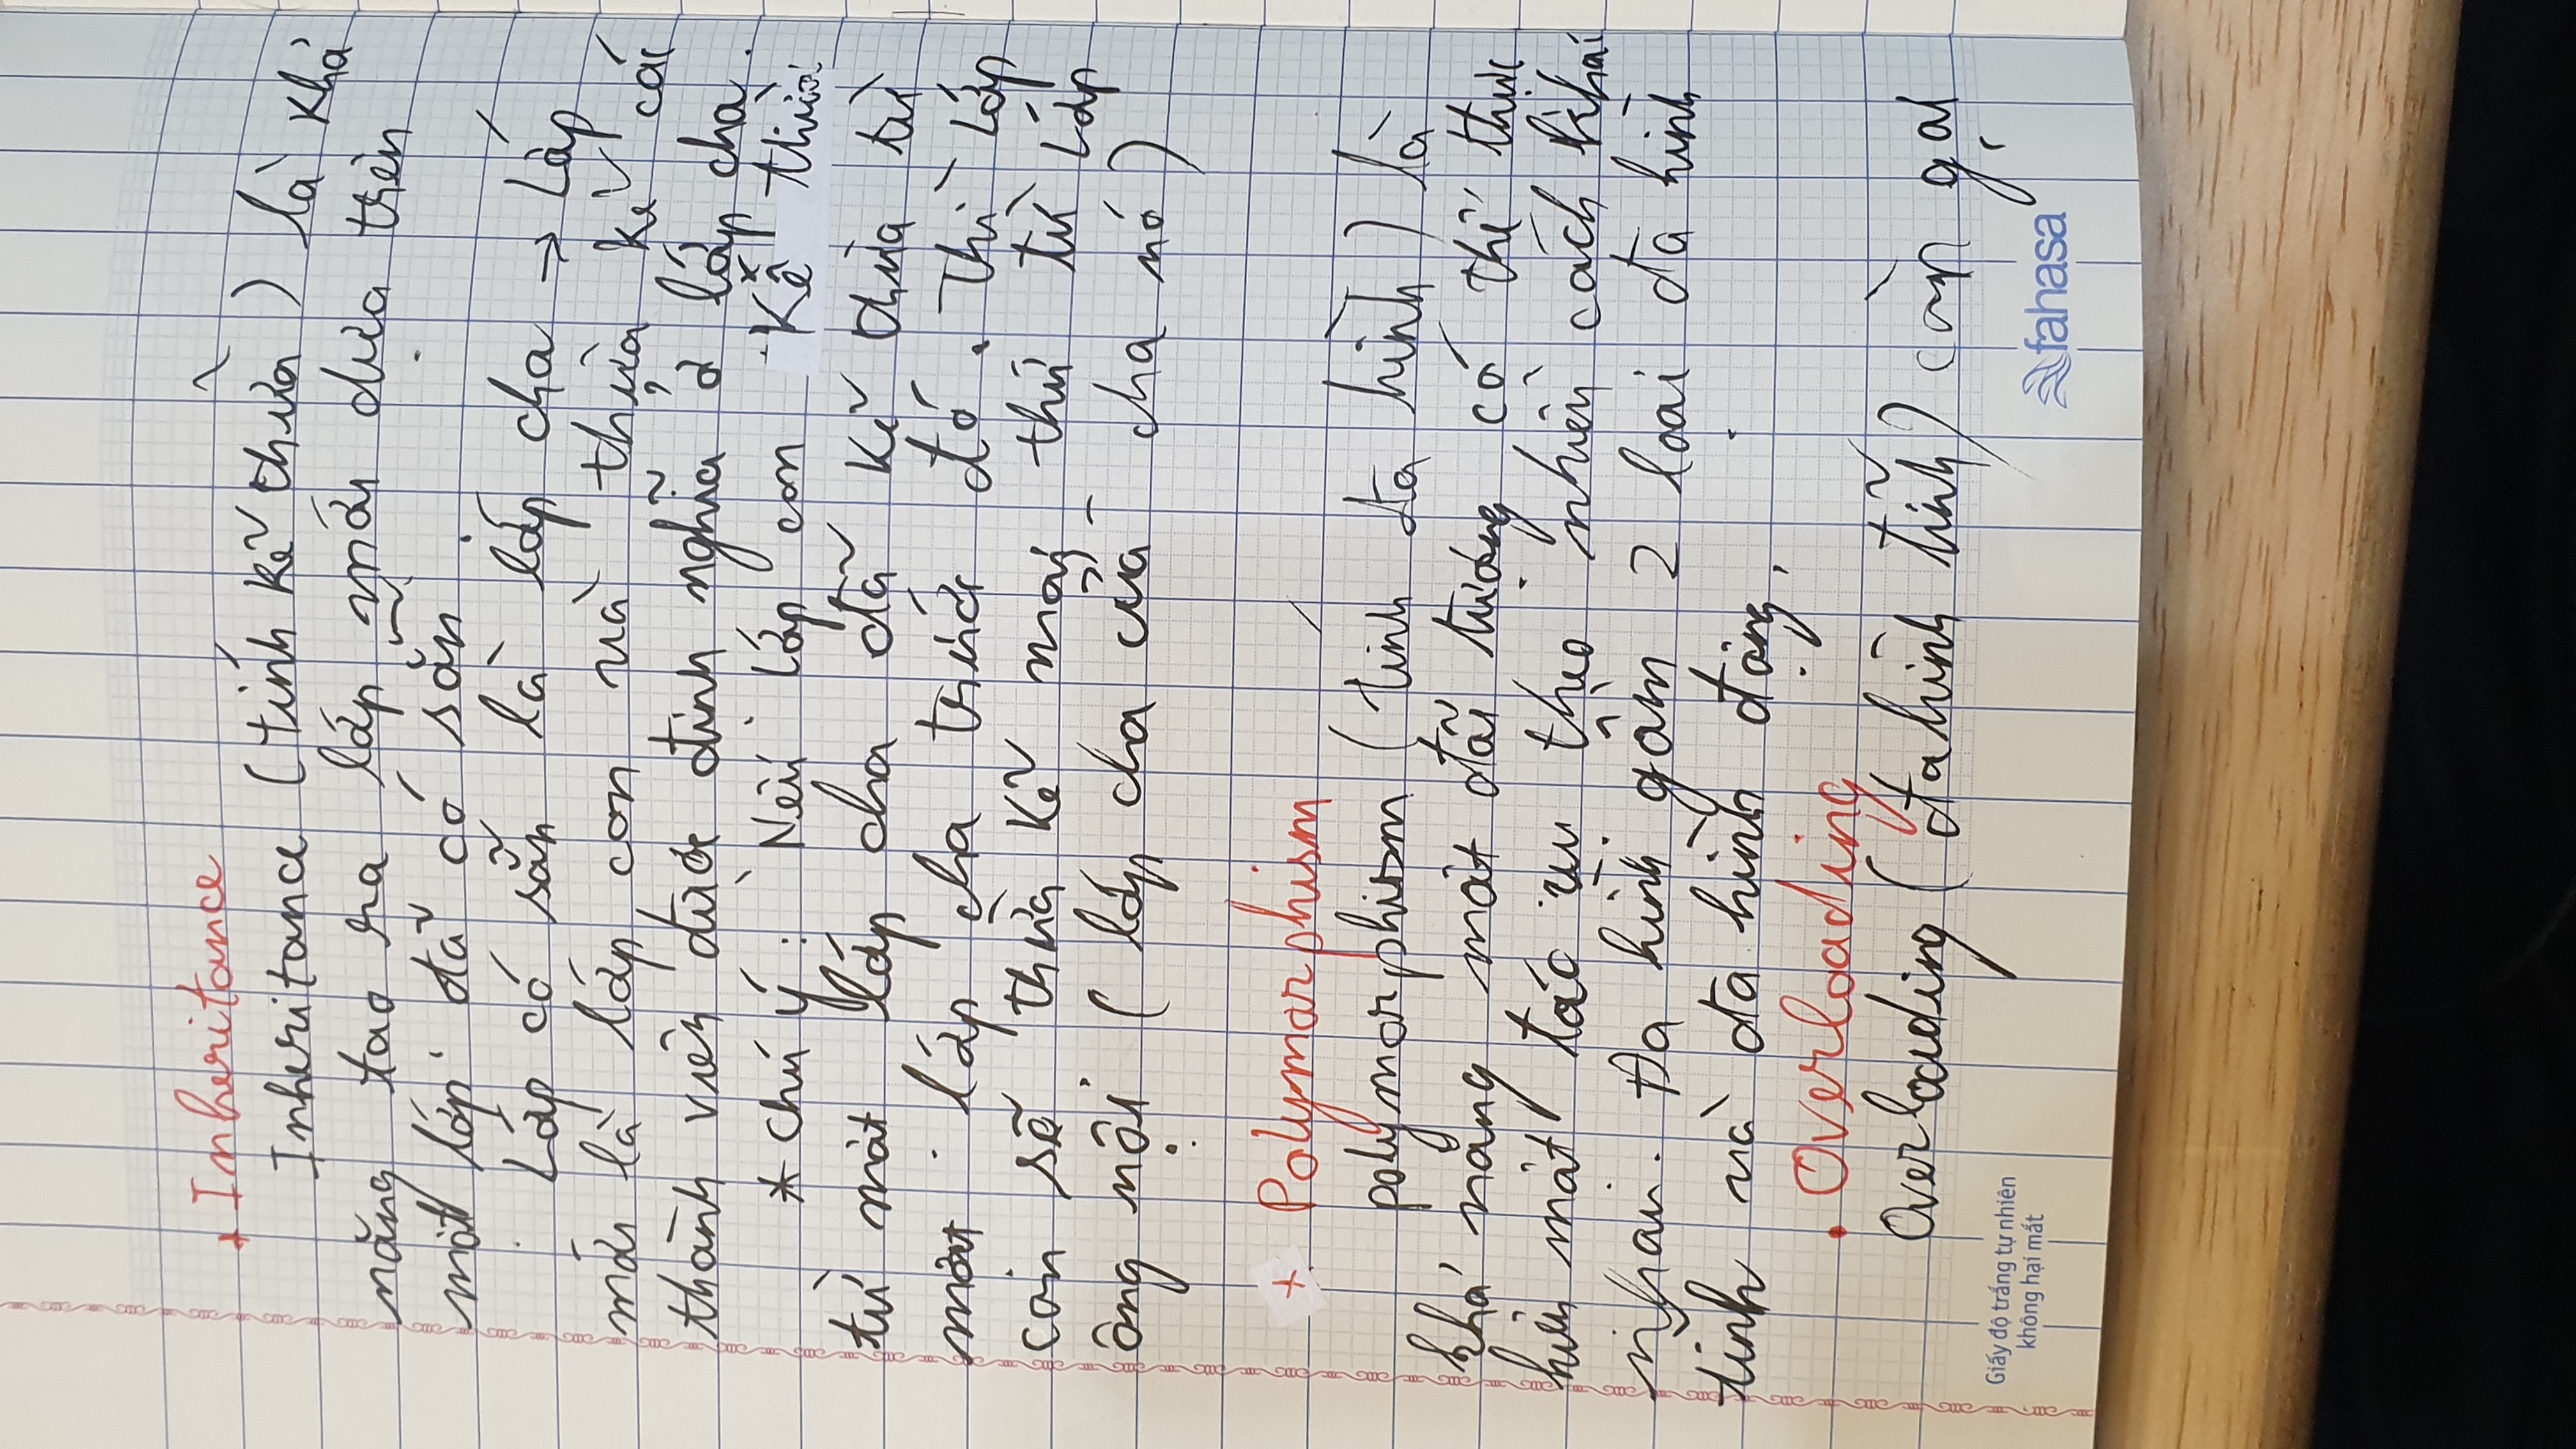 + Inheritance
Inheritance (tính kế thừa) là khả
năng tạo ra lớp mới dựa trên
một lớp đã có sẵn.
Lớp có sẵn là lớp cha → Lớp
mới là lớp con và thừa kế các
thành viên được định nghĩa ở lớp cha.
* Chú ý: Nếu lớp con kế thừa
từ một lớp cha đã kế thừa từ
một lớp cha trước đó. Thì lớp
con sẽ thừa kế mọi thứ từ lớp
ông nội (lớp cha của cha nó)
+ Polymorphism
polymorphism (tính đa hình) là
khả năng một đối tượng có thể thực
hiện một tác vụ theo nhiều cách khác
nhau. Đa hình gồm 2 loại đa hình
tĩnh và đa hình động.
. Overloading
Overloading (đa hình tĩnh) còn gọi
Giấy độ trắng tự nhiên
không hại mắt
fahasa